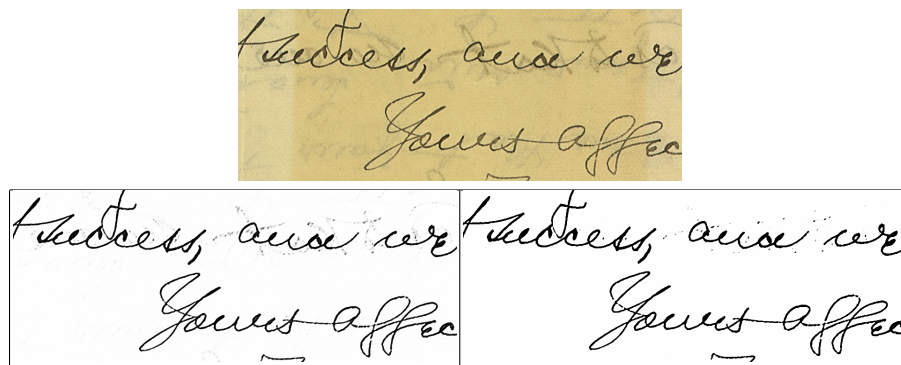 success, and we
Yours affec
success, and we
Yours affec
success, and we
Yours affec